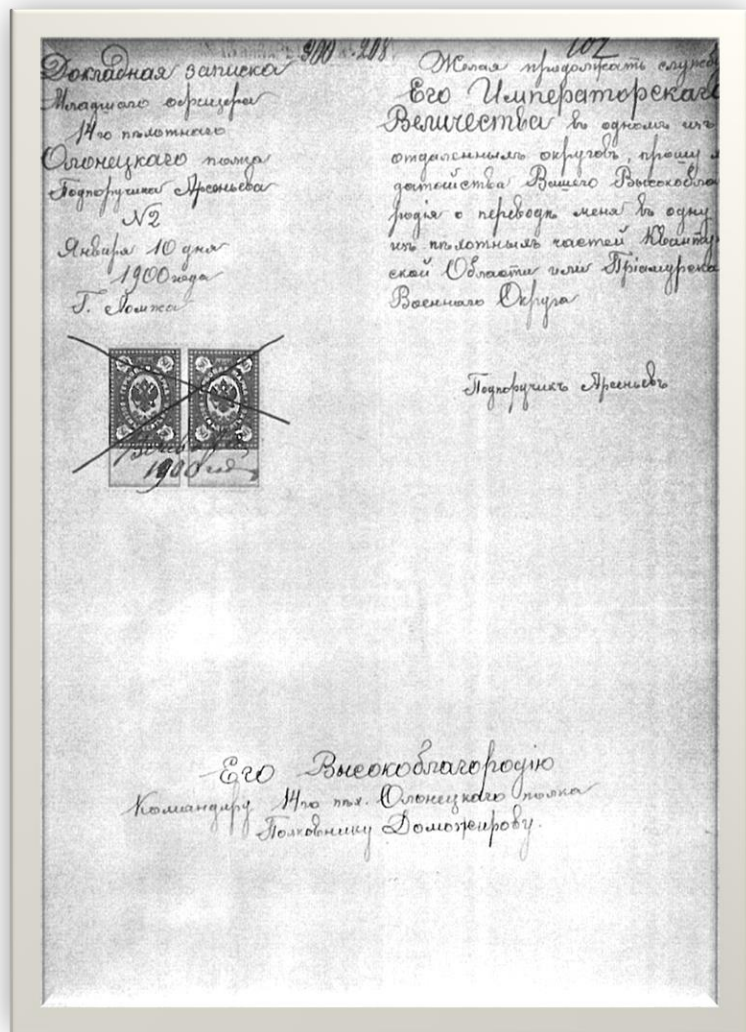 Докладная записка
Младшаго офицера
14го пѣхотнаго
Олонецкаго полка
Подпоручика Арсеньева
№2
Января 10 дня
1900 года
Г. Ломжа
1900 года
102
Желая продолжать службу
Его Императорскаго
Величества въ одномъ изъ
отдаленныхъ округовъ, прошу
Вашего Высокобла
родія о переводѣ меня въ одну
изъ пѣхотныхъ частей Кванту
ской Области или Пріамурска
Военнаго Округа
Подпоручикъ Арсеньевъ
Его Высокоблагородію
Командиру 14го пѣх. Олонецкаго полка
Полковнику Доможирову.